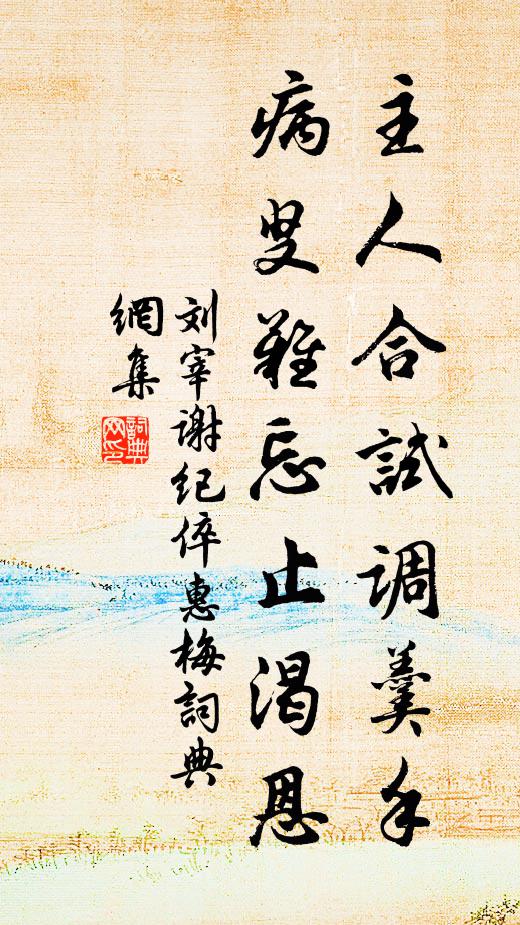 主人合試調羹手
病叟難忘止渴恩
刘宰谢纪倅惠梅詞典
網集
詞典网印